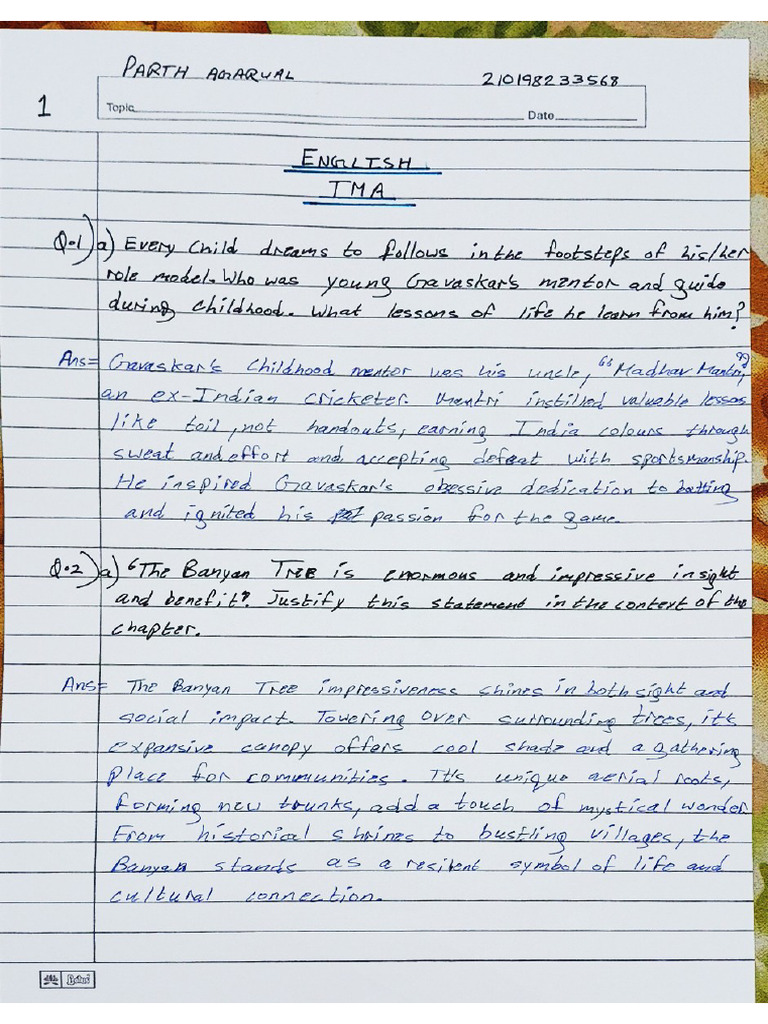 PARTH AGARWAL 210198233568
1
Topic
Date
ENGLISH
TMA
Q.1) a) Every child dreams to follows in the footsteps of his/her
role model. Who was young Gavaskar's mentor and guide
during childhood. What lessons of life he learn from him?
Ans= Gavaskar's childhood mentor was his uncle, "Madhav Mantri",
an ex-Indian cricketer. Mentri instilled valuable lesson
like toil, not handouts, earning India colours through
sweat and effort and accepting defeat with sportsmanship.
He inspired Gavaskar's obsessive dedication to batting
and ignited his passion for the game.
Q.2) a) "The Banyan Tree is enormous and impressive in sight
and benefit". Justify this statement in the context of the
chapter.
Ans= The Banyan Tree impressiveness shines in both sight and
social impact. Towering over surrounding trees, it's
expansive canopy offers cool shade and a gathering
place for communities. It's unique aerial roots,
forming new trunks, add a touch of mystical wonder.
From historical shrines to bustling villages, the
Banyan stands as a resilent symbol of life and
cultural connection.